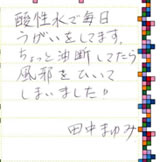 酸性水で毎日
うがいをしてます。
ちょっと油断してたら
風邪をひいて
しまいました!!
田中まゆみ